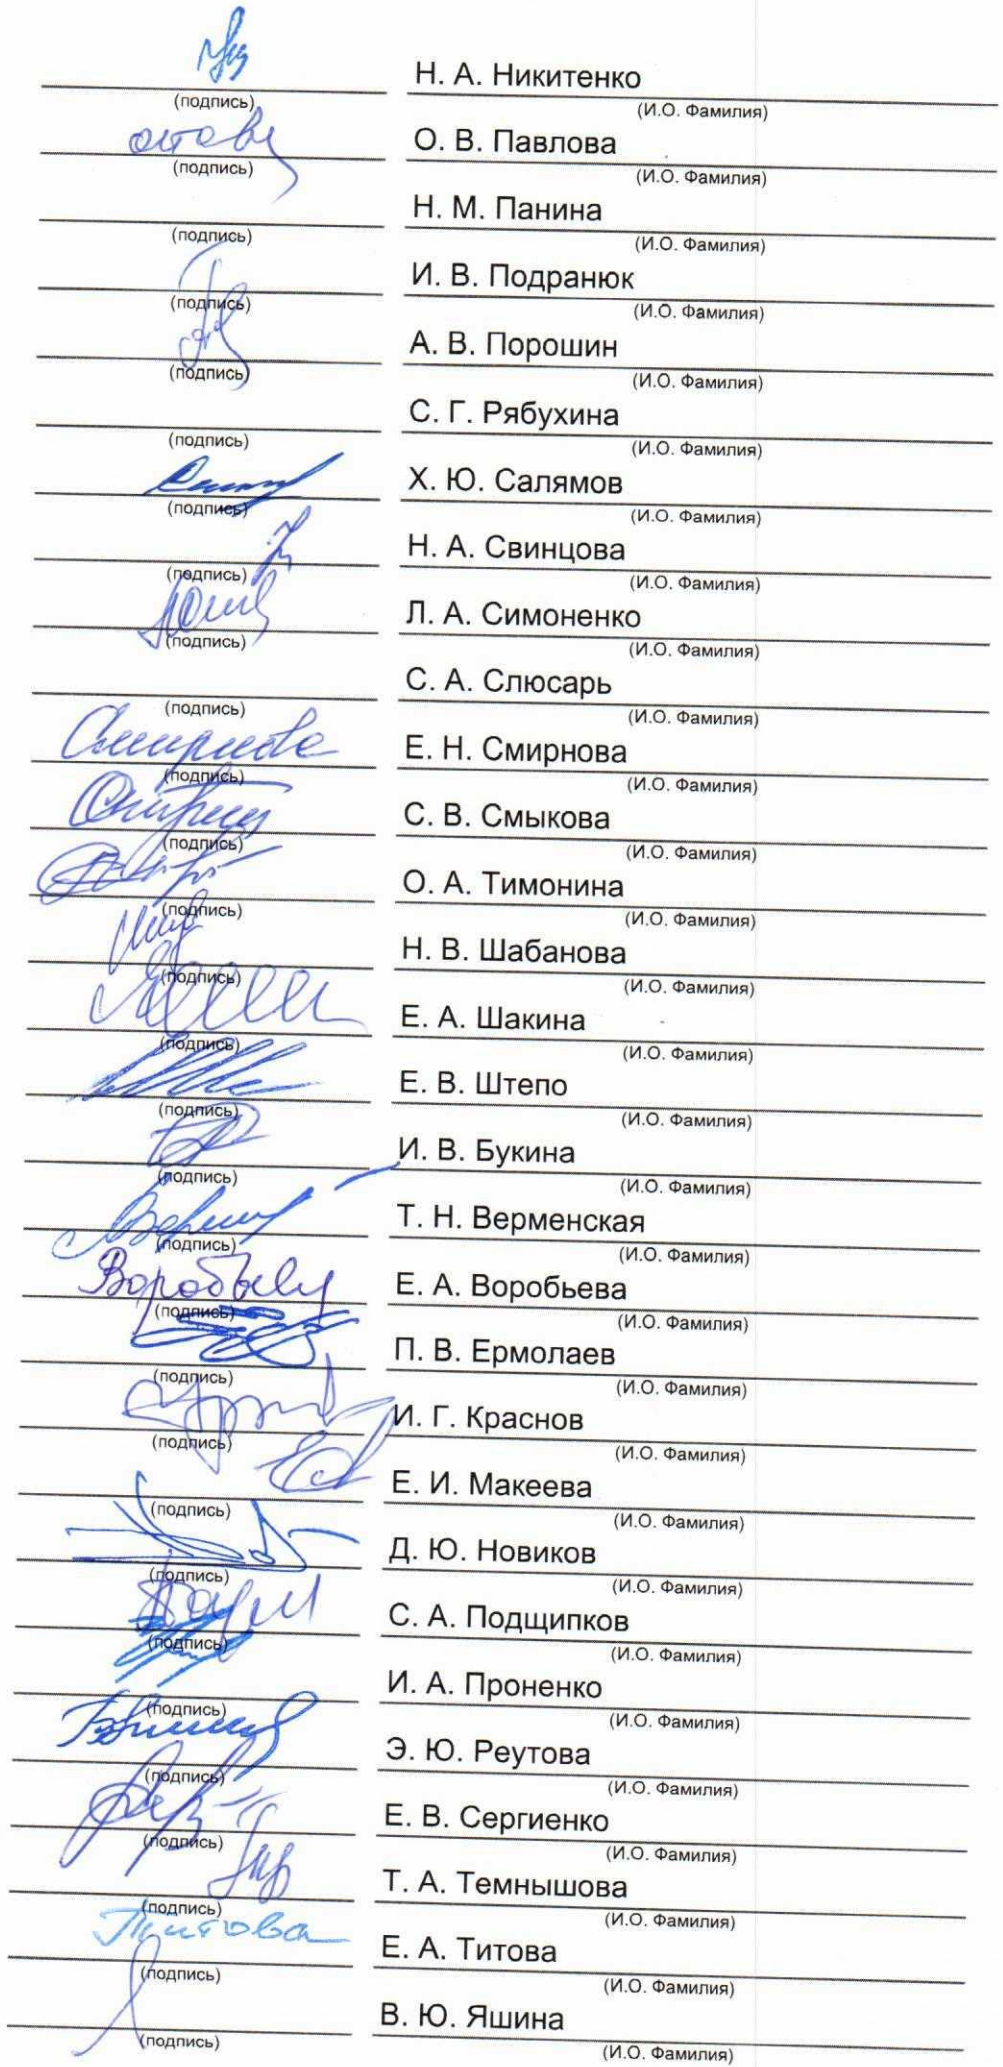 Н. А. Никитенко
(подпись) (И.О. Фамилия)
О. В. Павлова
(подпись) (И.О. Фамилия)
Н. М. Панина
(подпись) (И.О. Фамилия)
И. В. Подранюк
(подпись) (И.О. Фамилия)
А. В. Порошин
(подпись) (И.О. Фамилия)
С. Г. Рябухина
(подпись) (И.О. Фамилия)
Х. Ю. Салямов
(подпись) (И.О. Фамилия)
Н. А. Свинцова
(подпись) (И.О. Фамилия)
Л. А. Симоненко
(подпись) (И.О. Фамилия)
С. А. Слюсарь
(подпись) (И.О. Фамилия)
Смирнова Е. Н. Смирнова
(подпись) (И.О. Фамилия)
С. В. Смыкова
(подпись) (И.О. Фамилия)
О. А. Тимонина
(подпись) (И.О. Фамилия)
Н. В. Шабанова
(подпись) (И.О. Фамилия)
Е. А. Шакина
(подпись) (И.О. Фамилия)
Е. В. Штепо
(подпись) (И.О. Фамилия)
И. В. Букина
(подпись) (И.О. Фамилия)
Т. Н. Верменская
(подпись) (И.О. Фамилия)
Е. А. Воробьева
(подпись) (И.О. Фамилия)
П. В. Ермолаев
(подпись) (И.О. Фамилия)
И. Г. Краснов
(подпись) (И.О. Фамилия)
Е. И. Макеева
(подпись) (И.О. Фамилия)
Д. Ю. Новиков
(подпись) (И.О. Фамилия)
С. А. Подщипков
(подпись) (И.О. Фамилия)
И. А. Проненко
(подпись) (И.О. Фамилия)
Э. Ю. Реутова
(подпись) (И.О. Фамилия)
Е. В. Сергиенко
(подпись) (И.О. Фамилия)
Т. А. Темнышова
(подпись) (И.О. Фамилия)
Титова Е. А. Титова
(подпись) (И.О. Фамилия)
В. Ю. Яшина
(подпись) (И.О. Фамилия)